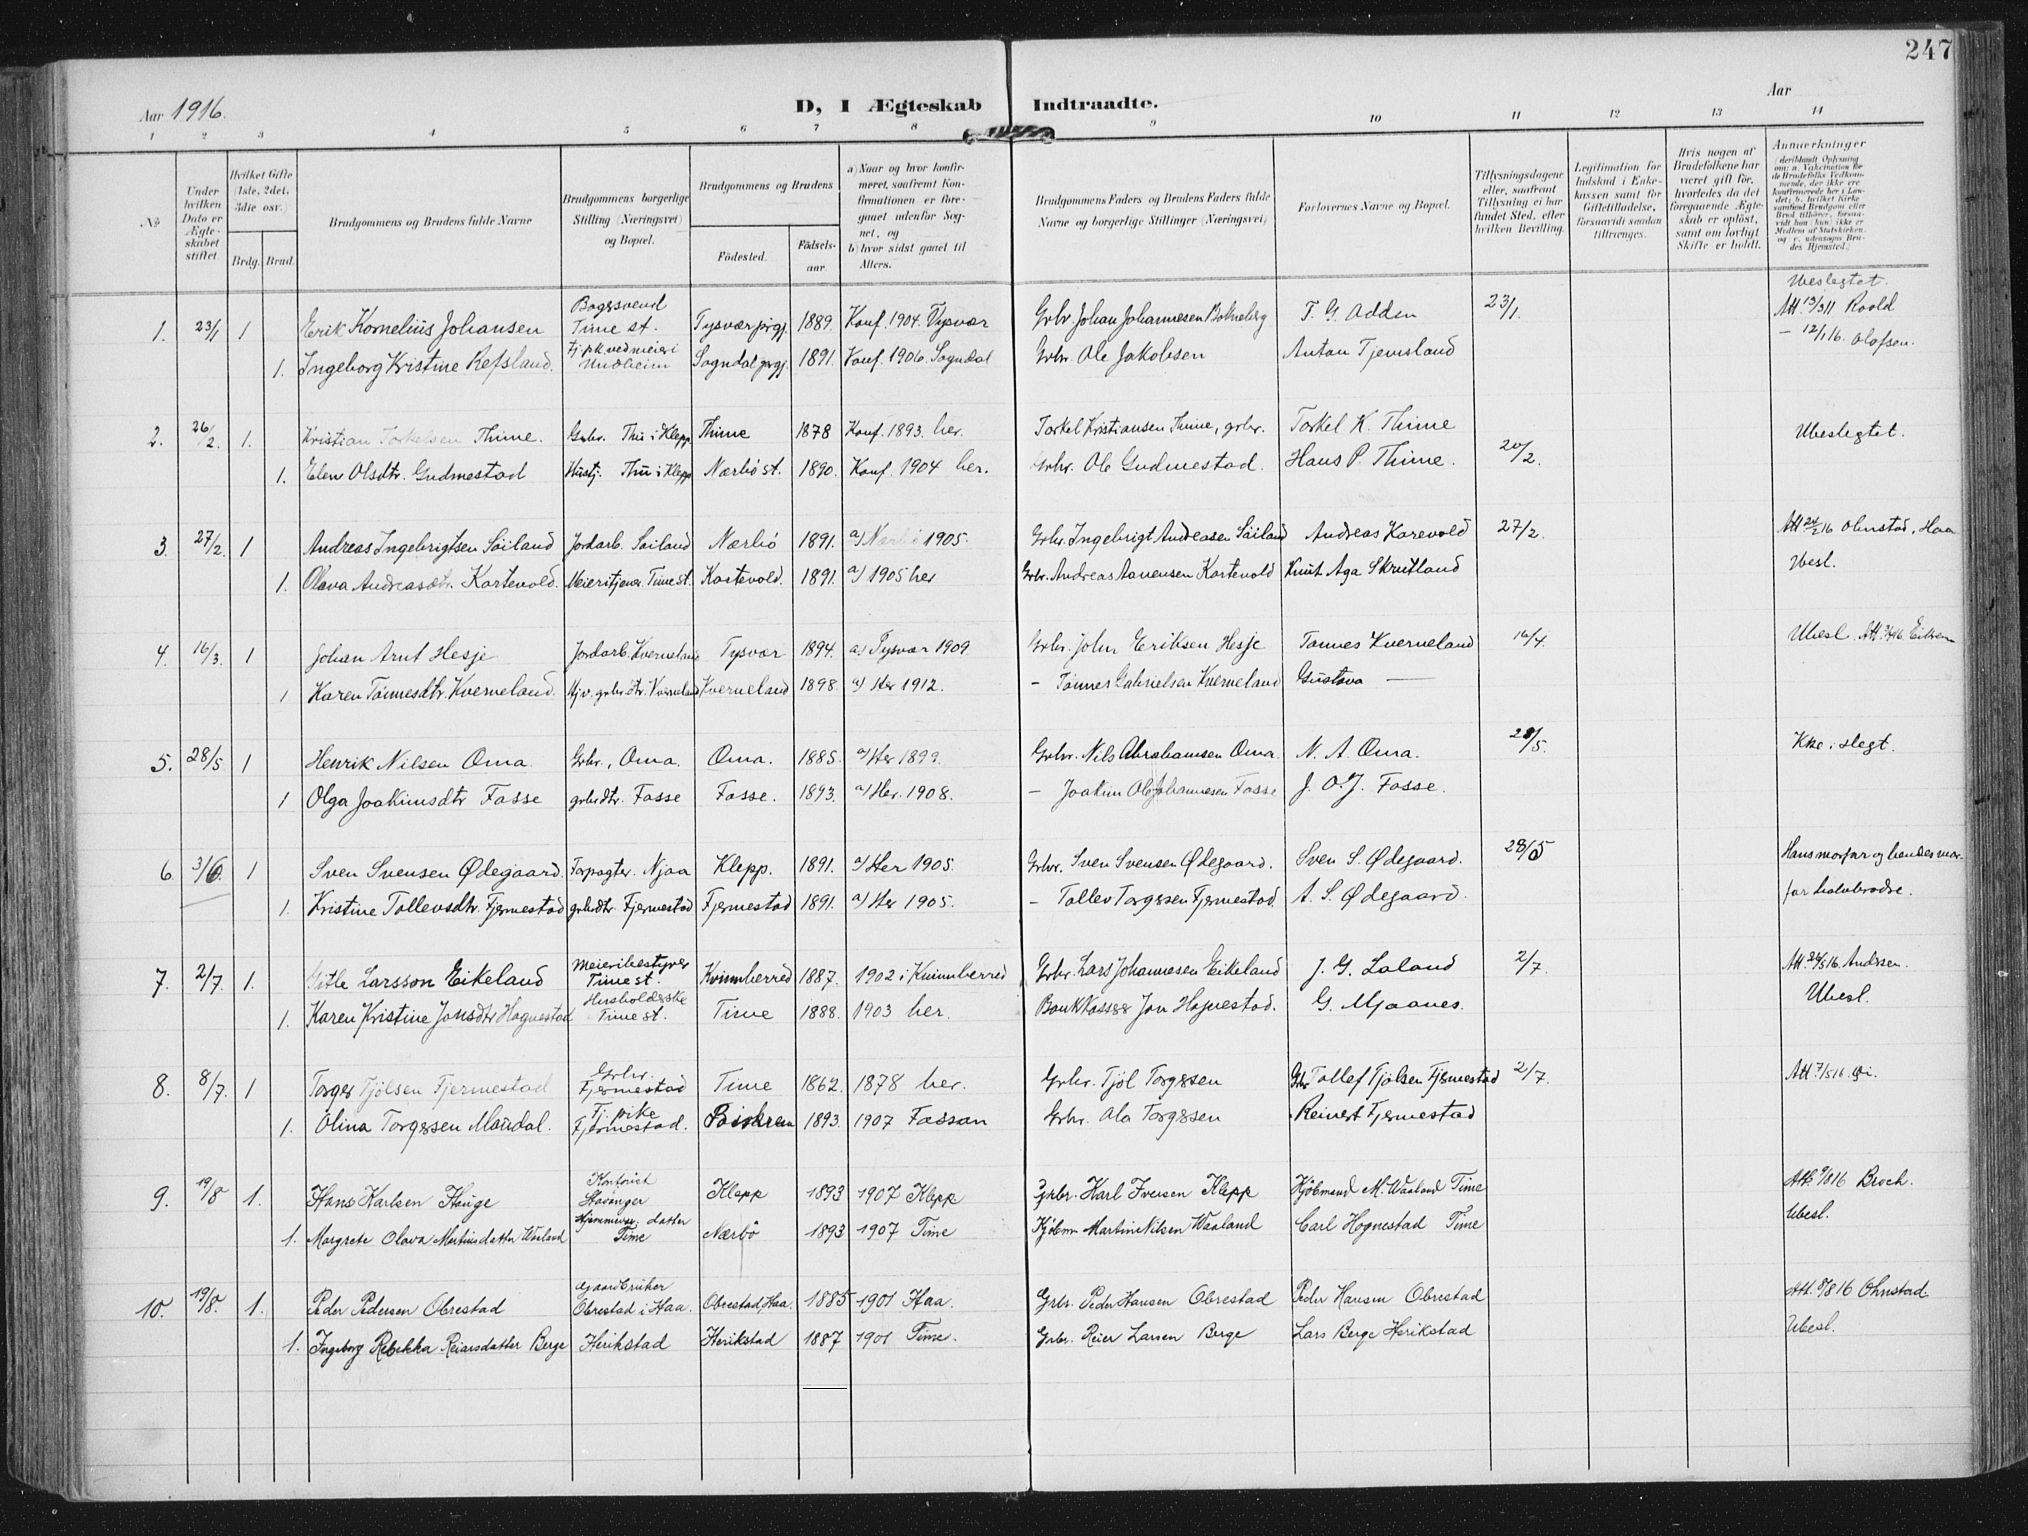 247
Aar 1916.
D, I Ægteskab Indtraadte.
Aar
1 2 3 4 5 6 7 8 9 10 11 12 13 14
No
Under hvilken Dato er Ægteskabet stiftet
Hvilket Gifte (1ste, 2det, 3die osv.)
Brdg. Brud.
Brudgommens og Brudens fulde Navne
Brudgommens borgerlige Stilling (Næringsvei) og Bopæl.
Brudgommens og Brudens
Födested. Födselsaar.
a) Naar og hvor konfirmeret, saafremt Konfirmationen er foregaaet udenfor Sognet, og
b) hvor sidst gaaet til Alters.
Brudgommens Faders og Brudens Faders fulde Navne og borgerlige Stillinger (Næringsvei)
Forlovernes Navne og Bopæl.
Tillysningsdagene eller, saafremt Tillysning ei har fundet Sted, efter hvilken Bevilling.
Legitimation for Indskud i Enkekassen samt for Giftetilladelse, forsaavidt saadan tiltrænges.
Hvis nogen af Brudefolkene har været gift før, hvorledes da det foregaaende Ægteskab er oplöst, samt om lovligt Skifte er holdt.
Anmerkninger
Ubeslegtet.
1. 23/1 1 Erik Kornelius Johansen Bagersvend Time st. Tysvær prgj. 1889. Konf. 1904. Tysvær Grbr. Johan Johannesen Bokneberg T. G. Adden 23/1. Att 13/3 11 Roald
1. Ingeborg Kristine Refsland. Tj.pk. ved meieri Undheim Sogndal prgj. 1891. Konf. 1906. Sogndal Grbr. Ole Jakobsen Anton Tjemsland – 12/1 16. Olafsen.
2. 26/2. 1. Kristian Torkelsen Thime. Grbr. Thu i Klepp Thime 1878 Konf. 1893. her. Torkel Kristiansen Thime, grbr. Torkel K. Thime Ubeslegtet.
1. Elen Olsdtr. Gudmestad Hustj. Thu i Klepp Nærbö st. 1890. Konf. 1904 her. Grbr. Ole Gudmestad. Hans P. Thime. 20/2.
3. 27/2. 1 Andreas Ingebrigtsen Söiland Jordarb. Söiland Nærbö 1891. a) 1905. Grbr. Ingebrigt Andreasen Söiland Andreas Karevold 27/2. Att 24/2 16 Ohnstad, Haa
1. Olava Andreasdtr. Kartevold. Meieritjener. Time st. Kartevold. 1891. a) 1905 her Grbr. Andreas Aanensen Kartevold Knut Aga Skrutland Ubesl.
4. 16/3. 1 Johan Arnt Hesje Jordarb. Kverneland Tysvær 1894. a) Tysvær 1909. Grbr. John Eriksen Hesje Tønnes Kverneland 16/4. Ubesl.
1 Karen Tönnesdtr. Kverneland. Hjv. grbrdtr. Kverneland Kverneland 1898. a) Her 1912. – Tönnes Gabrielsen Kverneland Gustava —
5. 28/5 1 Henrik Nilsen Oma. Grbr., Oma. Oma. 1885. a) Her 1899. Grbr. Nils Abrahamsen Oma. N. A. Oma. 28/5. Ikke i slegt.
1 Olga Joakimsdtr Fosse grbrdtr. Fosse Fosse. 1893. a) Her. 1908. – Joakim Ole Johannesen Fosse J. O. J. Fosse.
6. 3/6. 1 Sven Svensen Ødegaard. Forpagter. Njaa Klepp. 1891. a) Her 1905. Grbr. Sven Svensen Ødegaard. Sven S. Ødegaard. 28/5 Hans morfar og hendes mor-
1. Kristine Tollevsdtr. Fjermestad grbrdtr. Fjermestad Fjermestad 1891. a) Her 1905. – Tollev Torgersen Fjermestad. A. S. Ødegaard. far halvbrødre.
7. 2/7. 1. Gitle Larsson Eikeland Meieribestyrer Time st. Kvinnherred 1887. 1902 i Kvinnherred Grbr. Lars Johannesen Eikeland J. G. Laland 2/7. Att 24/5 16. Andrsen.
1. Karen Kristine Jonsdtr Hognestad Husholderske Time st. Time 1888. 1903 her. Bankkasser Jon Hognestad. G. Mjaanes. Ubesl.
8. 8/7. 1 Torger Tjölsen Fjermestad Grbr. Fjermestad Time 1862. 1878 her. Grbr. Tjöl Torgersen Grbr Tollef Tjölsen Fjermestad 2/7. Att 7/5 16.
1. Olina Torgersen Maudal. Tj.pike Fjermestad. 1893. 1907 Fossan Grbr. Ola Torgersen Reinert Fjermestad
9. 19/8 1. Hans Karlsen Hauge Kontorist Stavanger Klepp 1893 1907 Klepp Grbr. Karl Iversen Klepp Kjöbmand M. Waaland Time Att. 9/8 16 Broch.
1. Margrete Olava Martinsdatter Waaland Hjemmev. datter Time Nærbö 1893 1907 Time Kjöbm Martin Nilsen Waaland Carl Hognestad Time Ubesl.
10. 19/8. 1. Peder Pedersen Obrestad Gaardbruker Obrestad i Haa. Obrestad, Haa. 1885 1901 Haa. Grbr. Peder Hansen Obrestad Peder Hansen Obrestad Att. 8/8 16 Ohnstad.
1. Ingeborg Rebekka Reiersdatter Berge Herikstad Herikstad 1887 1901 Time. Grbr. Reier Larsen Berge Lars Berge Herikstad Ubesl.